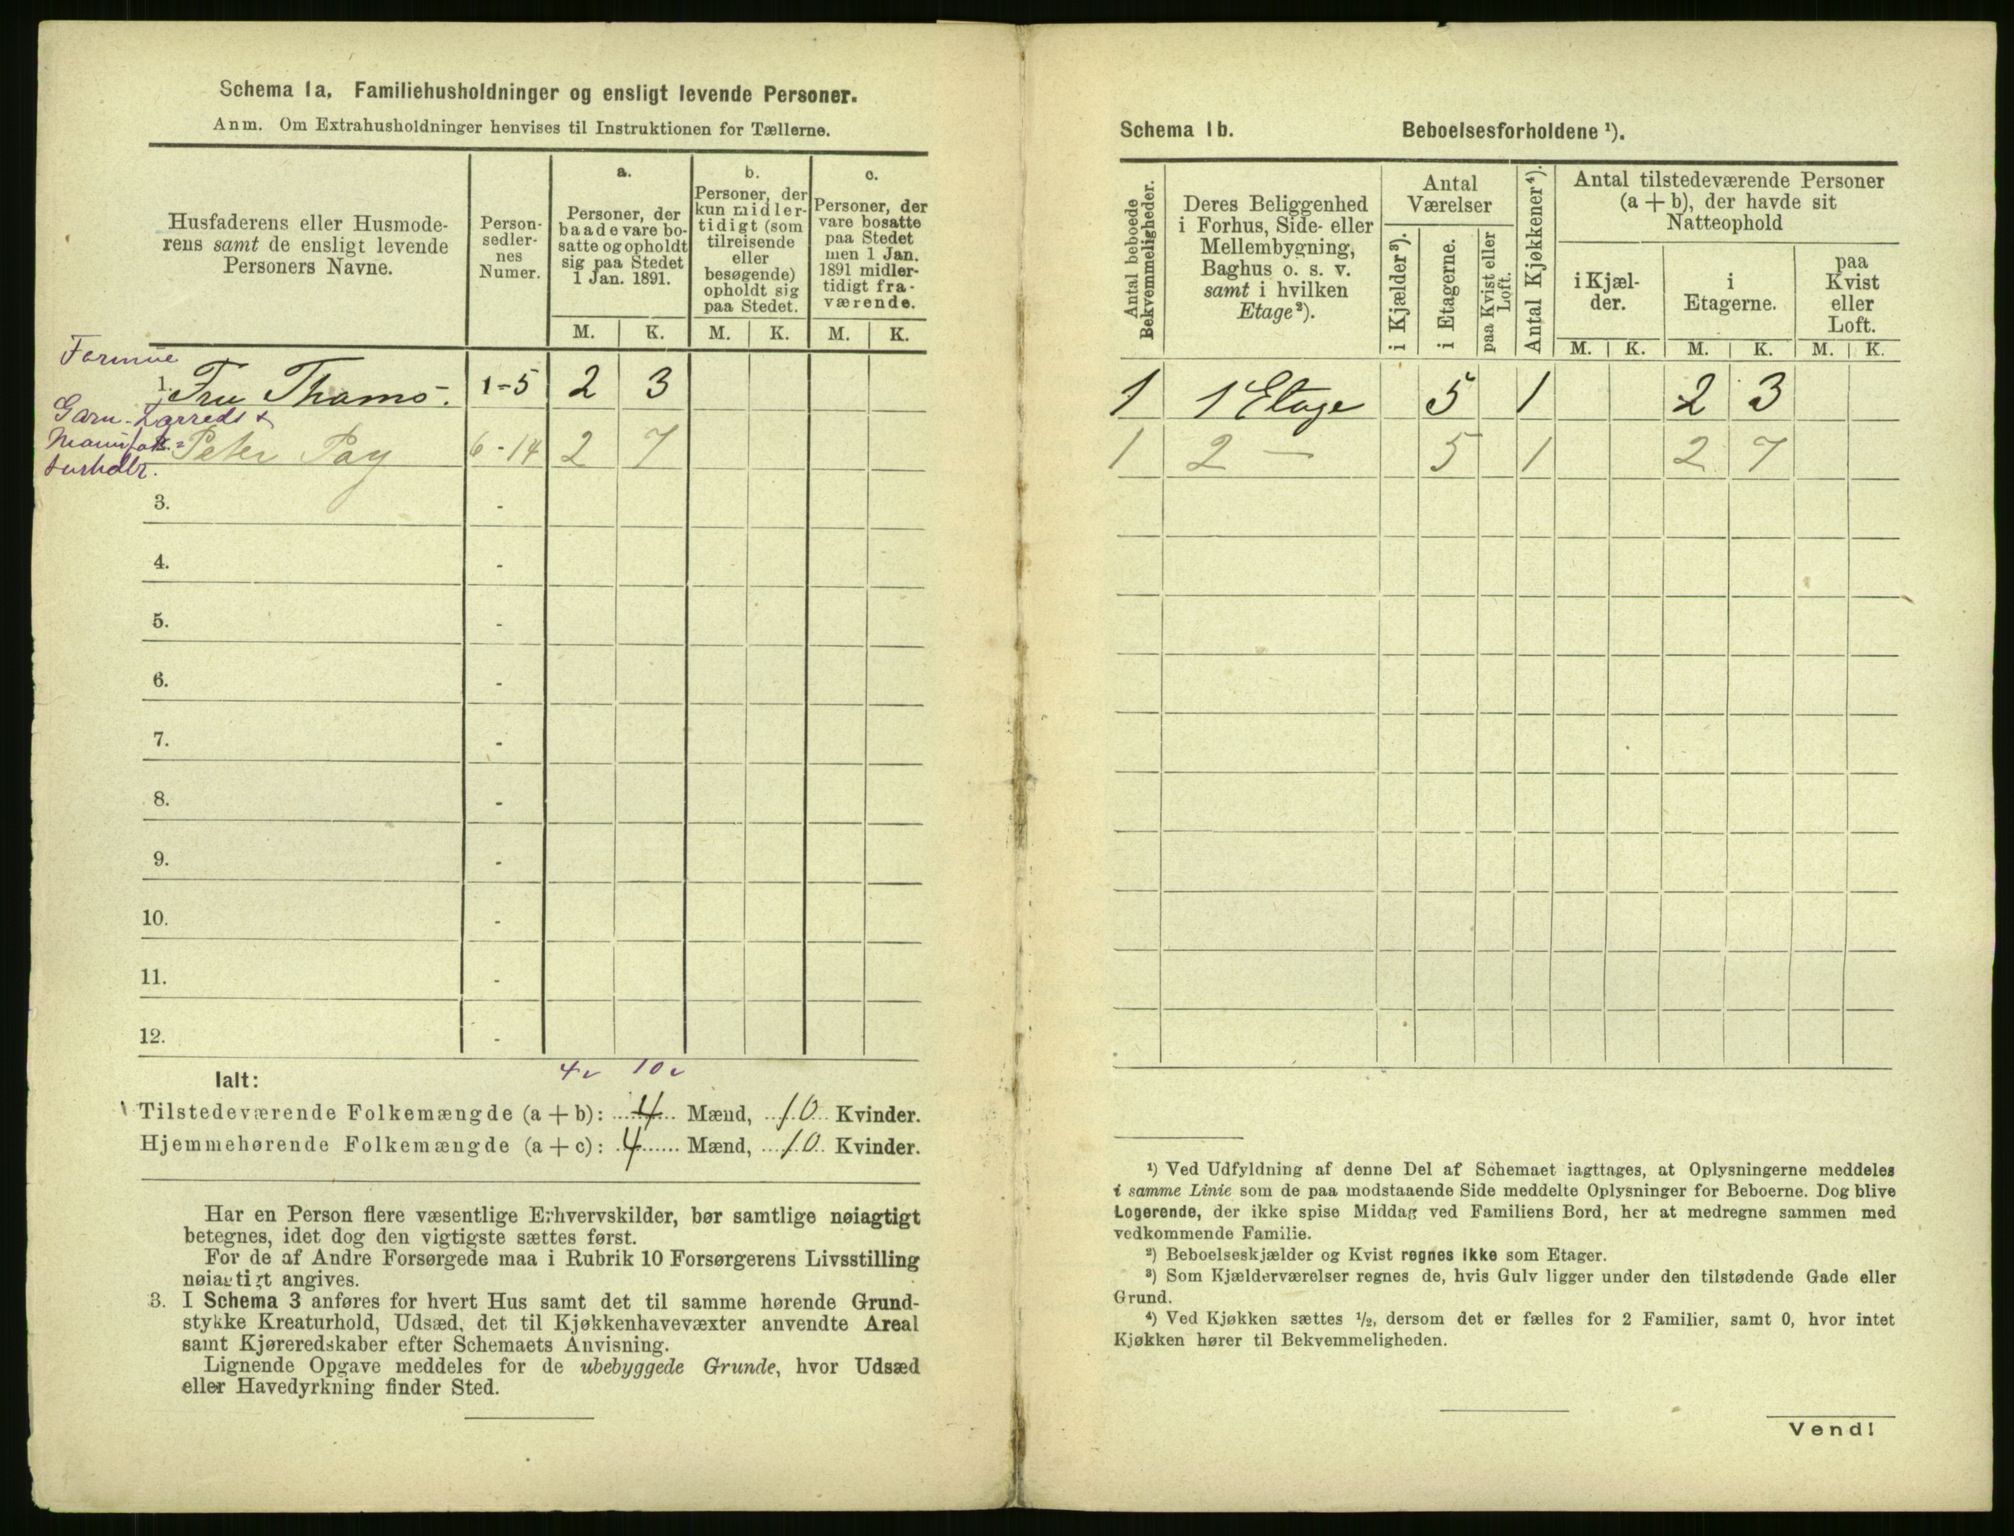 Schema 1a. Familiehusholdninger og ensligt levende Personer.
Anm. Om Extrahusholdninger henvises til Instruktionen for Tællerne.
Husfaderens eller Husmode-
rens samt de ensligt levende
Personers Navne.
Person-
sedler-
nes
Numer.
a.
Personer, der
baade vare bo-
satte og opholdt
sig paa Stedet
1 Jan. 1891.
b.
Personer, der
kun midler-
tidigt (som
tilreisende
eller
besøgende)
opholdt sig
paa Stedet.
c.
Personer, der
vare bosatte
paa Stedet
men 1 Jan.
1891 midler-
tidigt fra-
værende.
M. K. M. K. M. K.
Formue
1. Fru Thams. 1-5 2 3
Garn. Lærreds &
Manufak= Peter Pay 6-14 2 7
turhdlr.
3. -
4. -
5. -
6. -
7. -
8. -
9. -
10. -
11. -
12. -
4 10
Ialt:
Tilstedeværende Folkemængde (a + b): 4 Mænd, 10 Kvinder.
Hjemmehørende Folkemængde (a + c): 4 Mænd, 10 Kvinder.
Har en Person flere væsentlige Erhvervskilder, bør samtlige nøiagtigt
betegnes, idet dog den vigtigste sættes først.
For de af Andre Forsørgede maa i Rubrik 10 Forsørgerens Livsstilling
nøiagtigt angives.
3. I Schema 3 anføres for hvert Hus samt det til samme hørende Grund-
stykke Kreaturhold, Udsæd, det til Kjøkkenhavevæxter anvendte Areal
samt Kjøreredskaber efter Schemaets Anvisning.
Lignende Opgave meddeles for de ubebyggede Grunde, hvor Udsæd
eller Havedyrkning finder Sted.
Schema 1b. Beboelsesforholdene ¹).
Antal beboede
Bekvemmeligheder.
Deres Beliggenhed
i Forhus, Side- eller
Mellembygning,
Baghus o. s. v.
samt i hvilken
Etage²).
Antal
Værelser
i Kjælder³).
i Etagerne.
paa Kvist eller
Loft.
Antal Kjøkkener⁴).
Antal tilstedeværende Personer
(a + b), der havde sit
Natteophold
i Kjæl-
der.
i
Etagerne.
paa
Kvist
eller
Loft.
M. K. M. K. M. K.
1 1 Etage 5 1 2 3
1 2 — 5 1 2 7
¹) Ved Udfyldning af denne Del af Schemaet iagttages, at Oplysningerne meddeles
i samme Linie som de paa modstaaende Side meddelte Oplysninger for Beboerne. Dog blive
Logerende, der ikke spise Middag ved Familiens Bord, her at medregne sammen med
vedkommende Familie.
²) Beboelseskjælder og Kvist regnes ikke som Etager.
³) Som Kjælderværelser regnes de, hvis Gulv ligger under den tilstødende Gade eller
Grund.
⁴) Ved Kjøkken sættes ½, dersom det er fælles for 2 Familier, samt 0, hvor intet
Kjøkken hører til Bekvemmeligheden.
Vend!